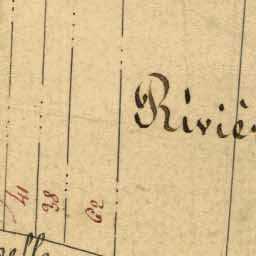 Riviè
41
38
62
elle